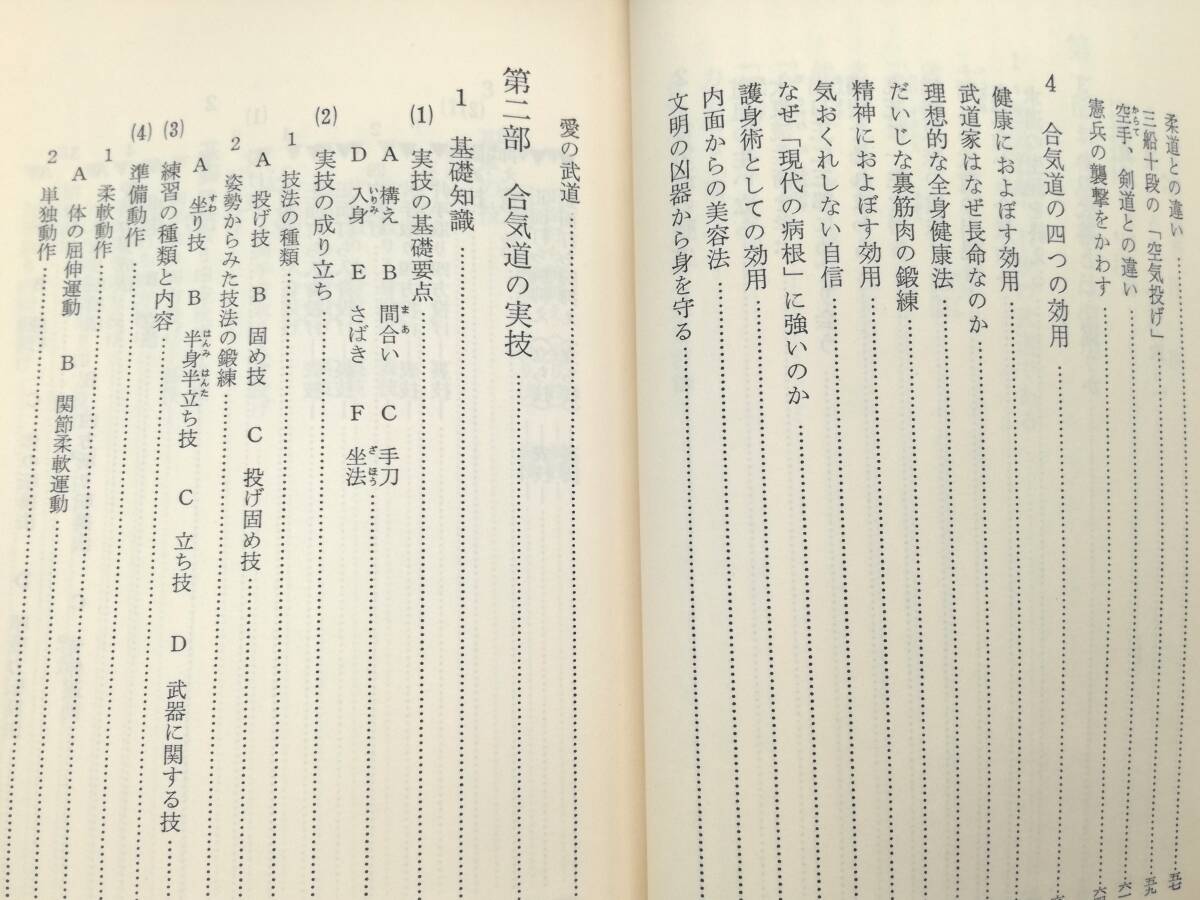 柔道との違い……五七
三船十段の「空気投げ」……五九
空手、剣道との違い……六一
憲兵の襲撃をかわす……六四
4 合気道の四つの効用
健康におよぼす効用
武道家はなぜ長命なのか
理想的な全身健康法
だいじな裏筋肉の鍛練
精神におよぼす効用
気おくれしない自信
なぜ「現代の病根」に強いのか
護身術としての効用
内面からの美容法
文明の凶器から身を守る
愛の武道
第二部 合気道の実技
1 基礎知識
(1) 実技の基礎要点
A 構え B 間合い C 手刀
D 入身 E さばき F 坐法
(2) 実技の成り立ち
1 技法の種類
A 投げ技 B 固め技 C 投げ固め技
2 姿勢からみた技法の鍛練
A 坐り技 B 半身半立ち技 C 立ち技 D 武器に関する技
(3) 練習の種類と内容
(4) 準備動作
1 柔軟動作
A 体の屈伸運動 B 関節柔軟運動
2 単独動作